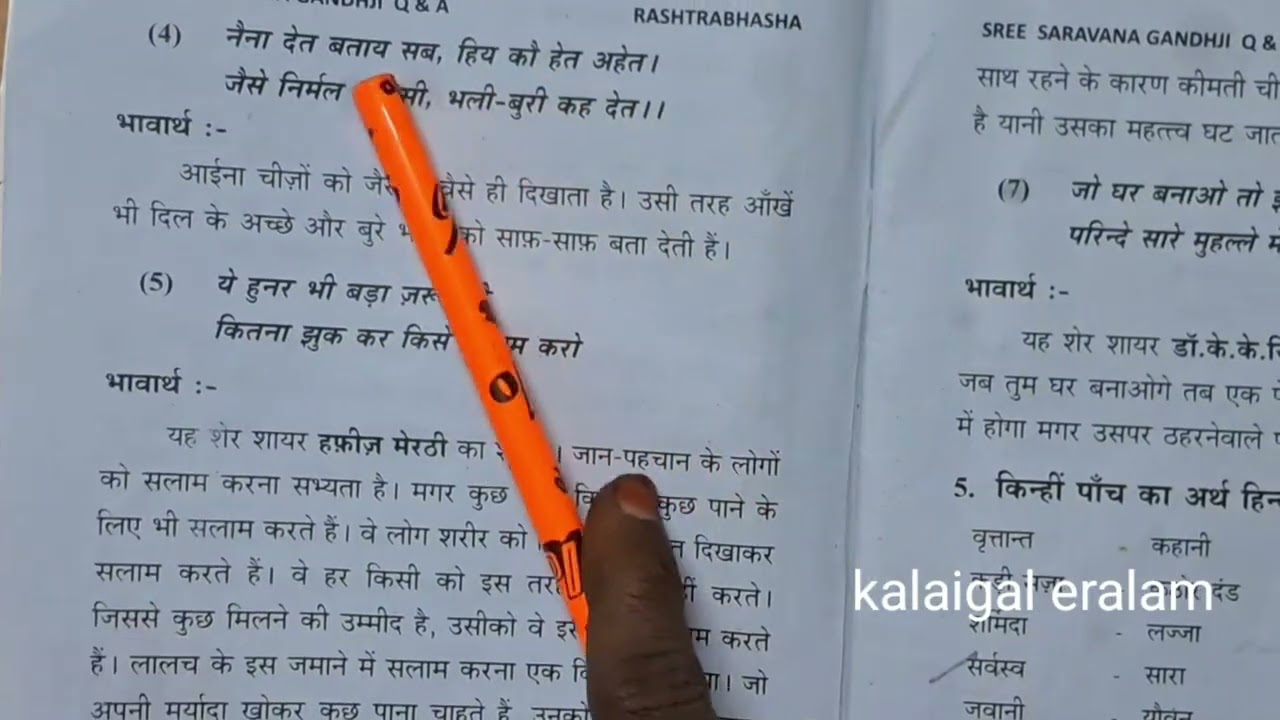 GANDHJI Q & A
RASHTRABHASHA
(4) नैना देत बताय सब, हिय कौ हेत अहेत।
जैसे निर्मल भली-बुरी कह देत।।
भावार्थ :-
आईना चीज़ों को वैसे ही दिखाता है। उसी तरह आँखें
भी दिल के अच्छे और बुरे को साफ़-साफ़ बता देती हैं।
(5) ये हुनर भी बड़ा
कितना झुक कर किसे करो
भावार्थ :-
यह शेर शायर हफ़ीज़ मेरठी का जान-पहचान के लोगों
को सलाम करना सभ्यता है। मगर कुछ कुछ पाने के
लिए भी सलाम करते हैं। वे लोग शरीर को दिखाकर
सलाम करते हैं। वे हर किसी को इस करते।
जिससे कुछ मिलने की उम्मीद है, उसीको वे करते
हैं। लालच के इस जमाने में सलाम करना एक जो
अपनी मर्यादा खोकर कुछ पाना चाहते हैं, उनको
SREE SARAVANA GANDHJI Q &
साथ रहने के कारण कीमती
है यानी उसका महत्त्व घट
(7) जो घर बनाओ तो
परिन्दे सारे मुहल्ले
भावार्थ :-
यह शेर शायर डॉ.के.के.
जब तुम घर बनाओगे तब एक
में होगा मगर उसपर ठहरनेवाले
5. किन्हीं पाँच का अर्थ
वृत्तान्त - कहानी
दंड
शर्मिंदा - लज्जा
सर्वस्व - सारा
जवानी - यौवन
kalaigal eralam